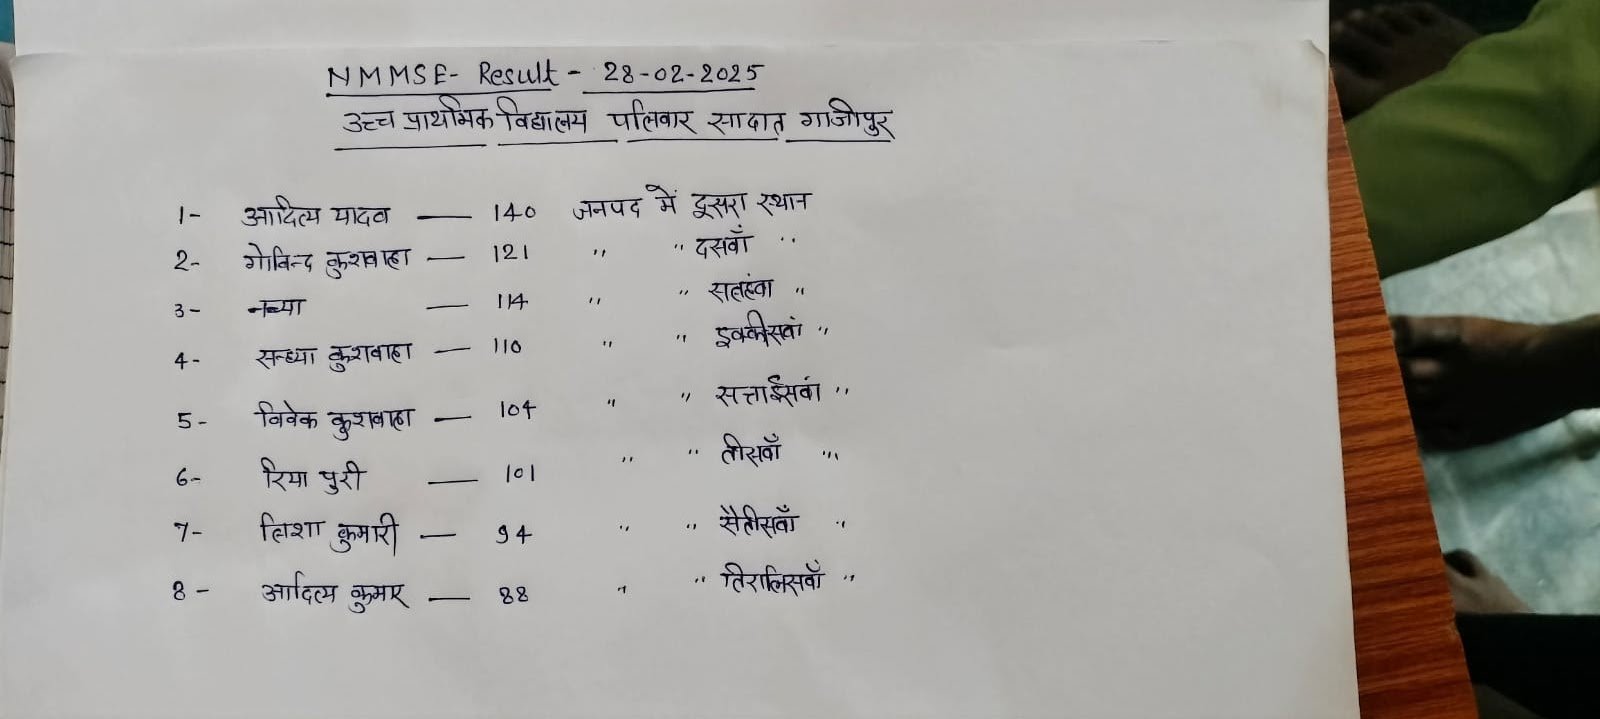 NMMSE- Result - 28-02-2025
उच्च प्राथमिक विद्यालय पलिवार सादात गाजीपुर
1- आदित्य यादव — 140 जनपद में दूसरा स्थान
2- गोविन्द कुशवाहा — 121 " " दसवाँ "
3- नव्या — 114 " " सतहंवा "
4- सन्ध्या कुशवाहा — 110 " " इक्कीसवां "
5- विवेक कुशवाहा — 104 " " सत्ताईसवां "
6- रिया पुरी — 101 " " तीसवाँ "
7- कुमारी — 94 " " सैतीसवाँ "
8- आदित्य कुमार — 88 " " तिरालिसवाँ "